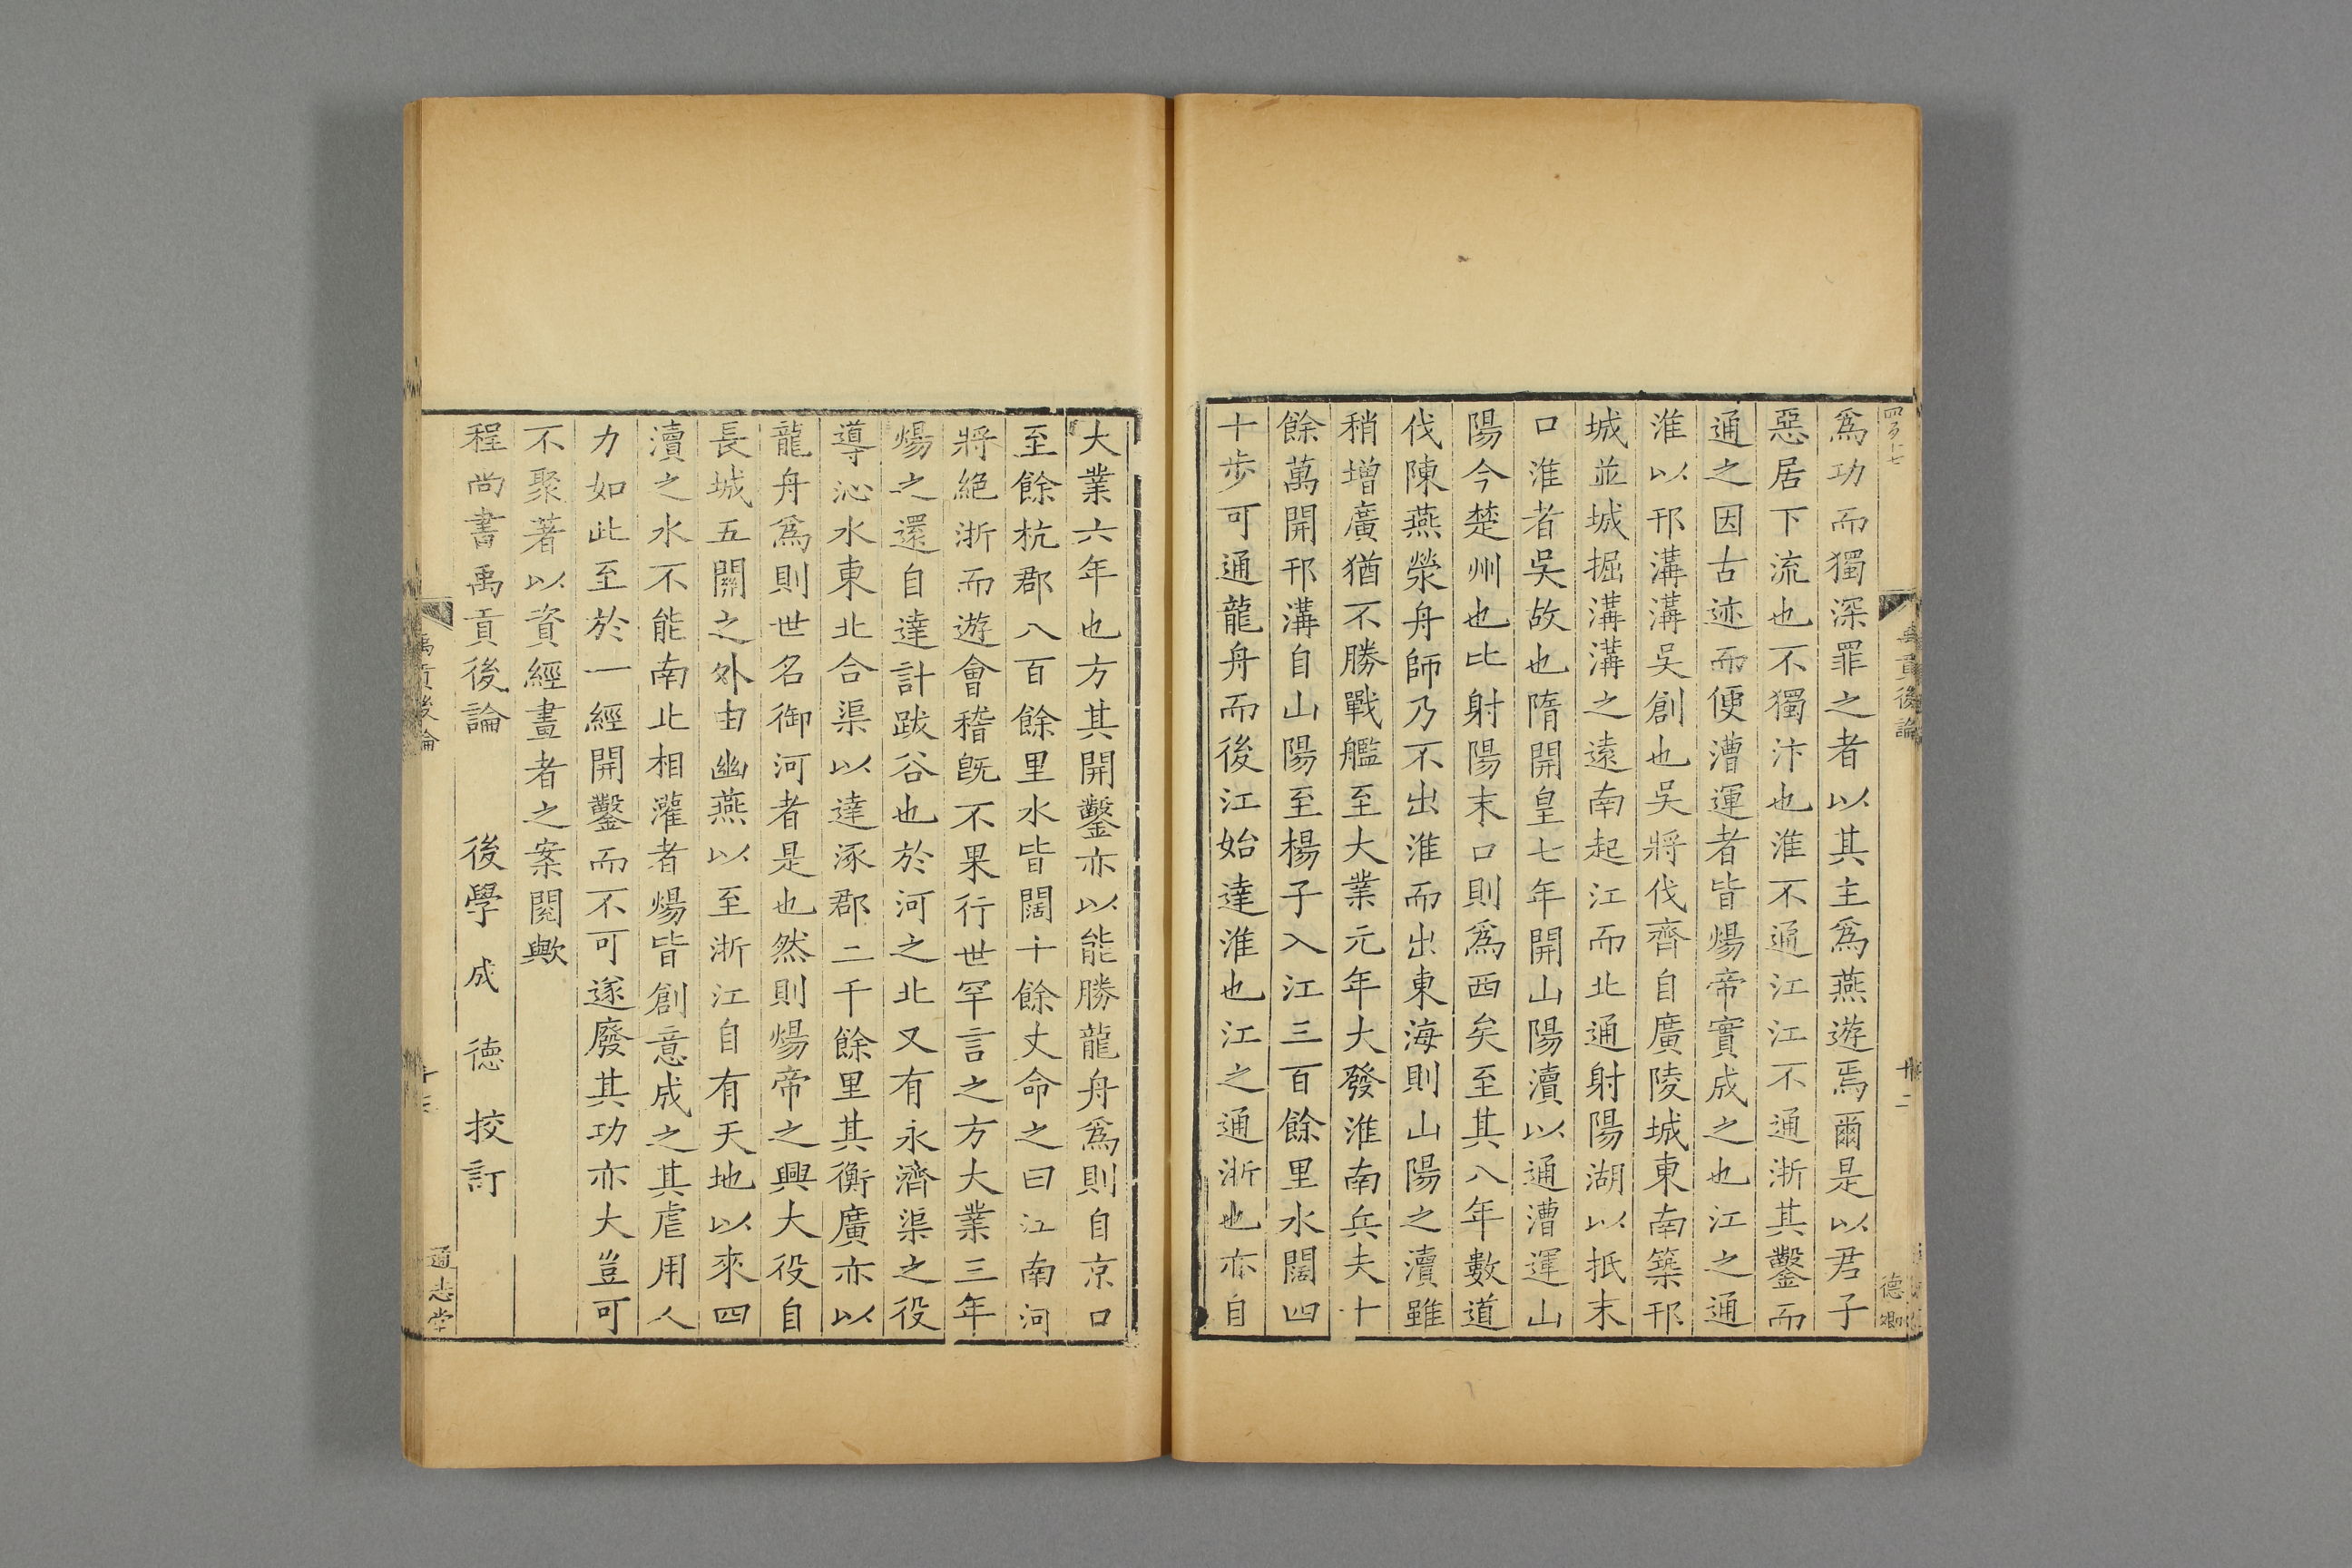 四百十七
禹貢後論
廿二
德卿
爲功而獨深罪之者以其主爲燕遊焉爾是以君子
惡居下流也不獨汴也淮不通江江不通浙其鑿而
通之因古迹而便漕運者皆煬帝實成之也江之通
淮以邗溝溝吳創也吳將伐齊自廣陵城東南築邗
城並城掘溝溝之遠南起江而北通射陽湖以抵末
口淮者吳故也隋開皇七年開山陽瀆以通漕運山
陽今楚州也比射陽末口則爲西矣至其八年數道
伐陳燕滎舟師乃不出淮而出東海則山陽之瀆雖
稍增廣猶不勝戰艦至大業元年大發淮南兵夫十
餘萬開邗溝自山陽至楊子入江三百餘里水闊四
十步可通龍舟而後江始達淮也江之通浙也亦自
大業六年也方其開鑿亦以能勝龍舟爲則自京口
至餘杭郡八百餘里水皆闊十餘丈命之曰江南河
將絕浙而遊會稽旣不果行世罕言之方大業三年
煬之還自達計跋谷也於河之北又有永濟渠之役
導沁水東北合渠以達涿郡二千餘里其衡廣亦以
龍舟爲則世名御河者是也然則煬帝之興大役自
長城五關之外由幽燕以至浙江自有天地以來四
瀆之水不能南北相灌者煬皆創意成之其虐用人
力如此至於一經開鑿而不可遂廢其功亦大豈可
不聚著以資經畫者之案閱歟
程尚書禹貢後論　後學成德校訂
禹貢後論
通志堂